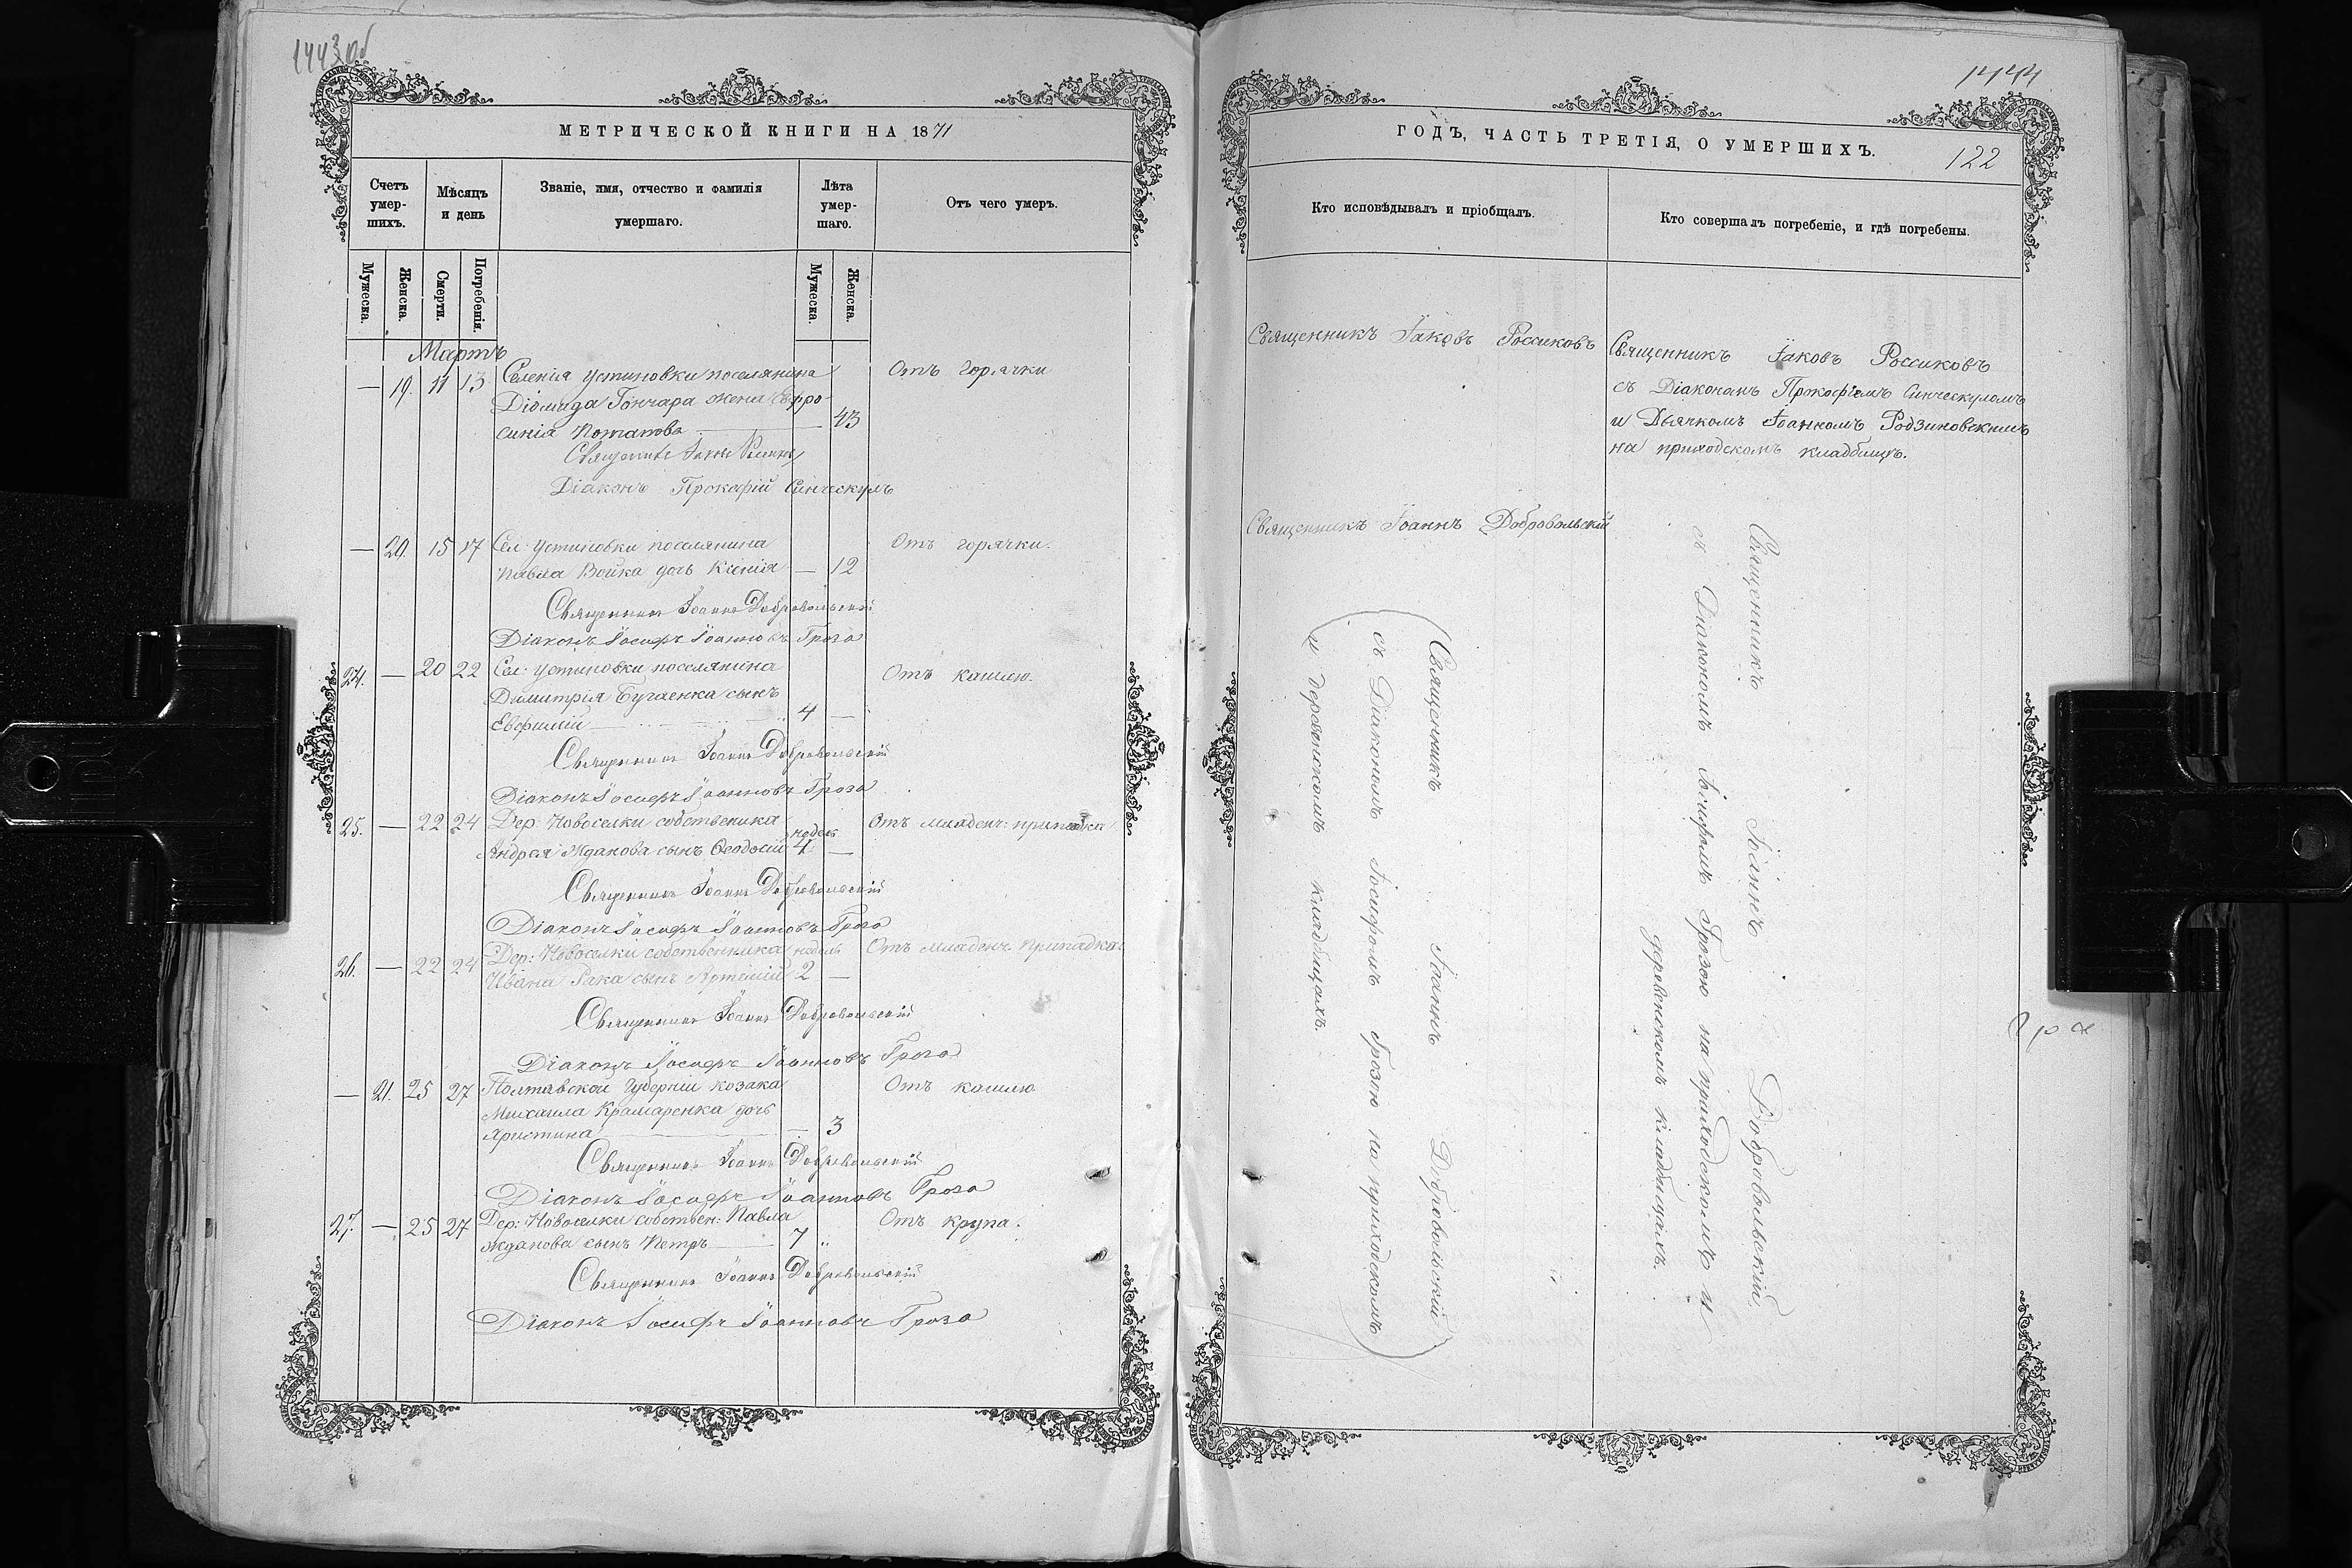 1443 об
МЕТРИЧЕСКОЙ КНИГИ НА 1871
Счетъ умер-шихъ.
Мѣсяцъ и день
Званіе, имя, отчество и фамилія умершаго.
Лѣта умер-шаго.
Отъ чего умеръ.
Мужеска.
Женска.
Смерти.
Погребенія.
Мужеска.
Женска.
Мартъ
— 19. 11 13 Селенія Устиновки поселянина Отъ горячки
Діомида Гончара жена Евфро-
синія Потапова — 43
Священникъ Іаковъ
Діаконъ Прокофій Синческулъ
— 20. 15 17 Сел: Устиновки поселянина Отъ горячки.
Павла Войка дочь Ксенія — 12
Священникъ Іоаннъ Добровольскій
Діаконъ Іосифъ Іоанновъ Гроза
24. — 20 22 Сел: Устиновки поселянина Отъ кашлю.
Димитрія Бугаенка сынъ
Евфимій 4 —
Священникъ Іоаннъ Добровольскій
Діаконъ Іосифъ Іоанновъ Гроза
25. — 22 24 Дер: Новоселки собственика недель Отъ младен: припадка
Андрея Жданова сынъ Ѳеодосій 4 —
Священникъ Іоаннъ Добровольскій
Діаконъ Іосифъ Іоанновъ Гроза
26. — 22 24 Дер: Новоселки собственника недель Отъ младенч припадка
Ивана Рака сынъ Артемій 2 —
Священникъ Іоаннъ Добровольскій
Діаконъ Іосифъ Іоанновъ Гроза
— 21. 25 27 Полтавской Губерніи козака Отъ кашлю
Михаила Крамаренка дочь
Христина — 3
Священникъ Іоаннъ Добровольскій
Діаконъ Іосифъ Іоанновъ Гроза
27. — 25 27 Дер: Новоселки собствен: Павла Отъ крупа.
Жданова сынъ Петръ 7 "
Священникъ Іоаннъ Добровольскій
Діаконъ Іосифъ Іоанновъ Гроза
1444
ГОДЪ, ЧАСТЬ ТРЕТІЯ, О УМЕРШИХЪ.
122
Кто исповѣдывалъ и пріобщалъ.
Кто совершалъ погребеніе, и гдѣ погребены.
Священникъ Іаковъ Россиковъ
Священникъ Іаковъ Россиковъ
съ Діакономъ Прокофіемъ Синческуломъ
и Дьячкомъ Іоанномъ Родзиновскимъ
на приходскомъ кладбищѣ.
Священникъ Іоаннъ Добровольскій
Священникъ Іоаннъ Добровольскій
съ Діакономъ Іосифомъ Грозою на приходскомъ
и деревенскомъ кладбищахъ.
Священникъ Іоаннъ Добровольскій
съ Діакономъ Іосифомъ Грозою на приходскомъ и
деревенскомъ кладбищахъ.